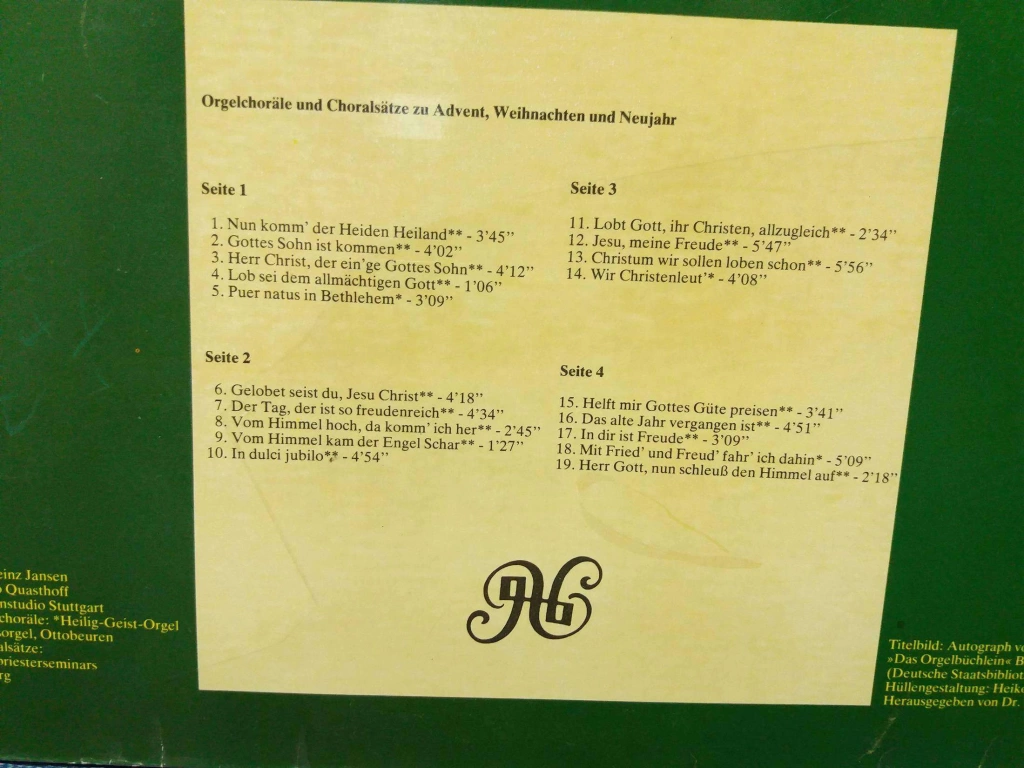 Orgelchoräle und Choralsätze zu Advent, Weihnachten und Neujahr
Seite 1
1. Nun komm’ der Heiden Heiland** - 3’45”
2. Gottes Sohn ist kommen** - 4’02”
3. Herr Christ, der ein’ge Gottes Sohn** - 4’12”
4. Lob sei dem allmächtigen Gott** - 1’06”
5. Puer natus in Bethlehem* - 3’09”
Seite 2
6. Gelobet seist du, Jesu Christ** - 4’18”
7. Der Tag, der ist so freudenreich** - 4’34”
8. Vom Himmel hoch, da komm’ ich her** - 2’45”
9. Vom Himmel kam der Engel Schar** - 1’27”
10. In dulci jubilo** - 4’54”
Seite 3
11. Lobt Gott, ihr Christen, allzugleich** - 2’34”
12. Jesu, meine Freude** - 5’47”
13. Christum wir sollen loben schon** - 5’56”
14. Wir Christenleut’* - 4’08”
Seite 4
15. Helft mir Gottes Güte preisen** - 3’41”
16. Das alte Jahr vergangen ist** - 4’51”
17. In dir ist Freude** - 3’09”
18. Mit Fried’ und Freud’ fahr’ ich dahin* - 5’09”
19. Herr Gott, nun schleuß den Himmel auf** - 2’18”
einz Jansen
Quasthoff
nstudio Stuttgart
choräle: *Heilig-Geist-Orgel
orgel, Ottobeuren
alsätze:
priesterseminars
rg
Titelbild: Autograph vo
»Das Orgelbüchlein« B
(Deutsche Staatsbibliot
Hüllengestaltung: Heiko
Herausgegeben von Dr.